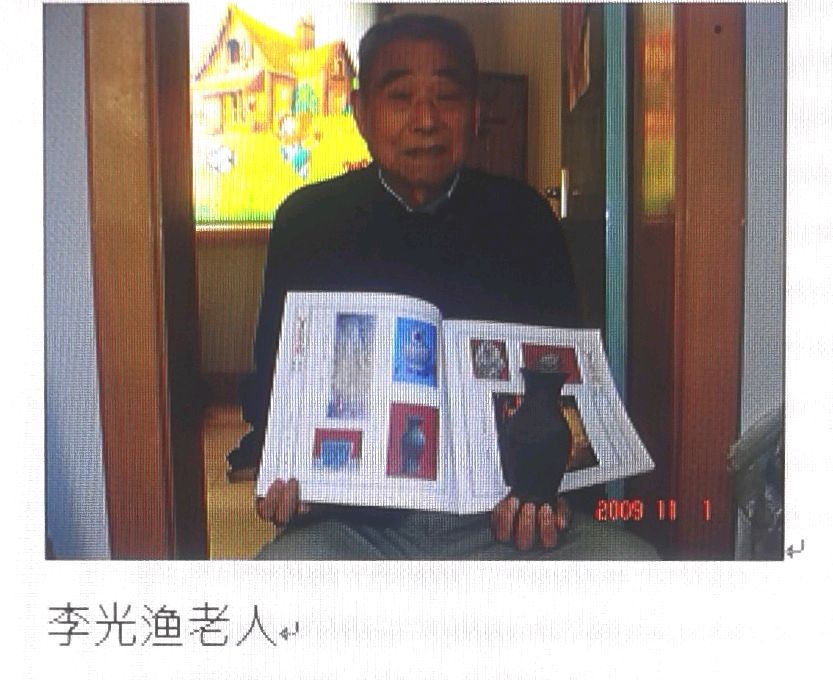 2009 11 1
李光渔老人